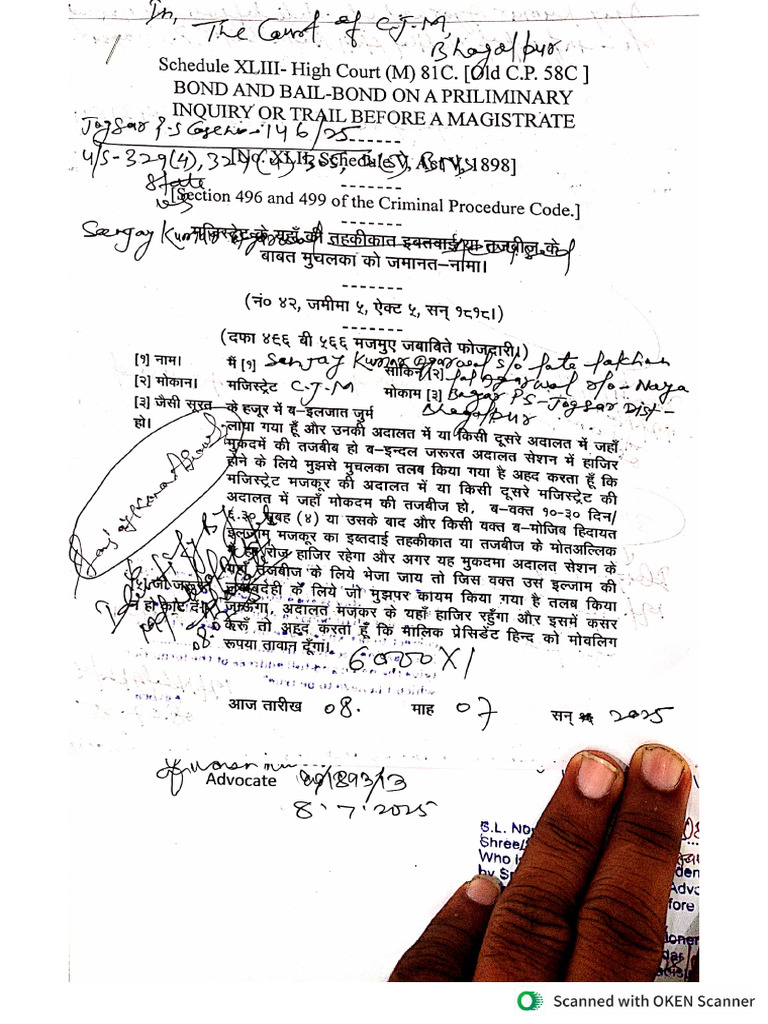 In,
The Court of C.J.M,
Bhagalpur
Schedule XLIII- High Court (M) 81C. [Old C.P. 58C ]
BOND AND BAIL-BOND ON A PRILIMINARY
INQUIRY OR TRAIL BEFORE A MAGISTRATE
Jogsar P.S Case No-146/25
U/S-329(4),
[No. XLII, Schedule V, Act V, 1898]
State
[Section 496 and 499 of the Criminal Procedure Code.]
Sanjay Kumar
मजिस्ट्रेट के यहाँ की तहकीकात इबतवाई या तजबीज के
बाबत मुचलका को जमानत–नामा।
(नं० ४२, जमीमा ५, ऐक्ट ५, सन् १८१८।)
(दफा ४९६ वी ५६६ मजमुए जबाबिते फोजदारी।)
[१] नाम। मैं [१] Sanjay Kumar Agarwal s/o Late Lakhan
साकिन [२] Lal Agarwal r/o- Naya
[२] मोकान। मजिस्ट्रेट C.J.M मोकाम [३] Bazar PS-Jogsar Dist-
Bhagalpur
[३] जैसी सूरत के हजूर में ब–इलजात जुर्म
हो। लाया गया हूँ और उनकी अदालत में या किसी दूसरे अवालत में जहाँ
मुकदमें की तजबीब हो ब–इन्दल जरूरत अदालत सेशन में हाजिर
होने के लिये मुझसे मुचलका तलब किया गया है अहद करता हूँ कि
मजिस्ट्रेट मजकूर की अदालत में या किसी दूसरे मजिस्ट्रेट की
अदालत में जहाँ मोकदम की तजबीज हो, ब–वक्त १०-३० दिन/
६.३० सुबह (४) या उसके बाद और किसी वक्त ब–मोजिब हिदायत
इलजाम मजकूर का इब्तदाई तहकीकात या तजबीज के मोतअल्लिक
रोज हाजिर रहेगा और अगर यह मुकदमा अदालत सेशन के
यहाँ तजबीज के लिये भेजा जाय तो जिस वक्त उस इल्जाम की
जो जरूरत जबाबदेही के लिये जो मुझपर कायम किया गया है तलब किया
न हो काट दें। जाऊँगा, अदालत मजकर के यहाँ हाजिर रहुँगा और इसमें कसर
करूँ तो अहद करता हूँ कि मालिक प्रेसिडेंट हिन्द को मोवलिग
रूपया तावान दूँगा।
आज तारीख 08. माह 07 सन् 2025
Advocate
8.7.2025
S.L. No
Shree/
Who i
by S
fore
Scanned with OKEN Scanner